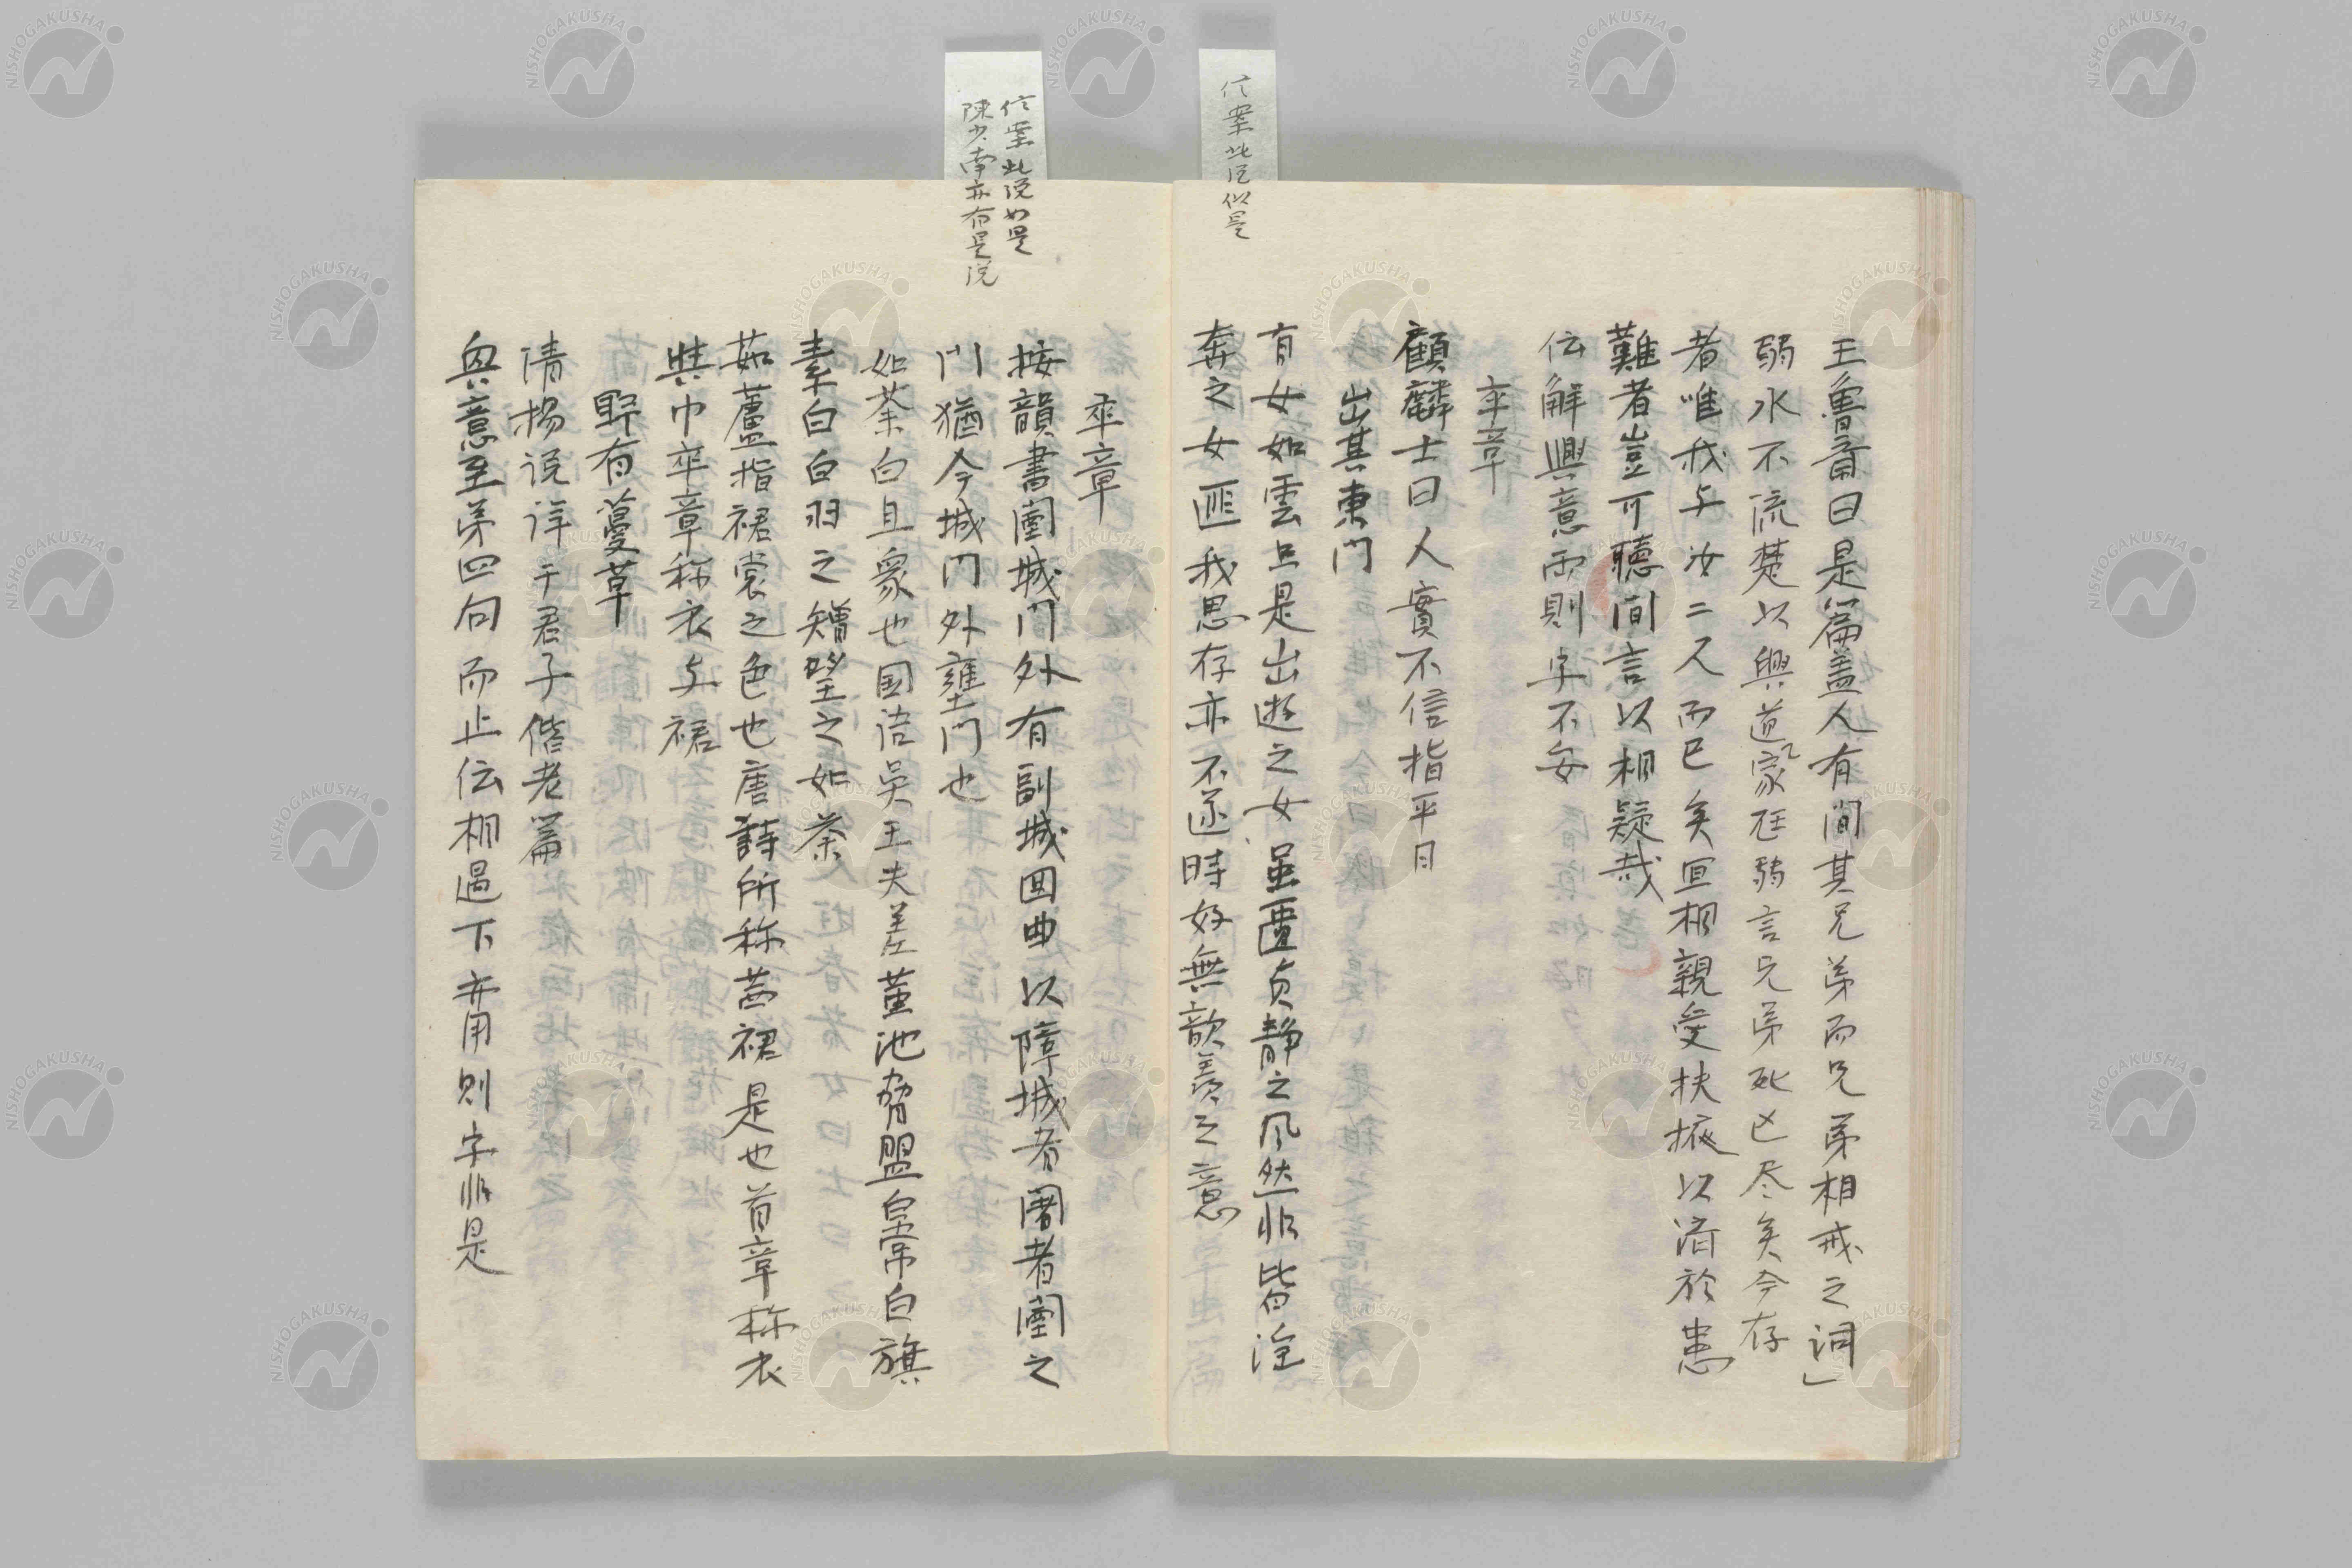 信案此说似是
王魯斎曰是篇盖人有間其兄弟而兄弟相戒之词」
弱水不流楚以興道家尫弱言兄弟死亡尽矣今存
者唯我与汝二人而已矣宜相親愛扶掖以済於患
難者豈可聴間言以相疑哉
伝解興意而則字不妥
卒章
顧麟士曰人實不信指平日
出其東門
有女如雲亦是出遊之女虽匪貞静之风然非皆淫
奔之女匪我思存亦不逐時好無歆羡之意
信案此说如是
陳少南亦有是说
卒章
按韻書闉城門外有副城回曲以障城者闍者闉之
门猶今城门外壅门也
如荼白且衆也国语吴王夫差黄池脅盟皇常白旗
素白白羽之矰望之如荼
茹藘指裙裳之色也唐詩所称茜裙是也首章称衣
与巾卒章称衣与裙
野有蔓草
清揚说详于君子偕老篇
興意至第四句而止伝相遇下亦用则字非是